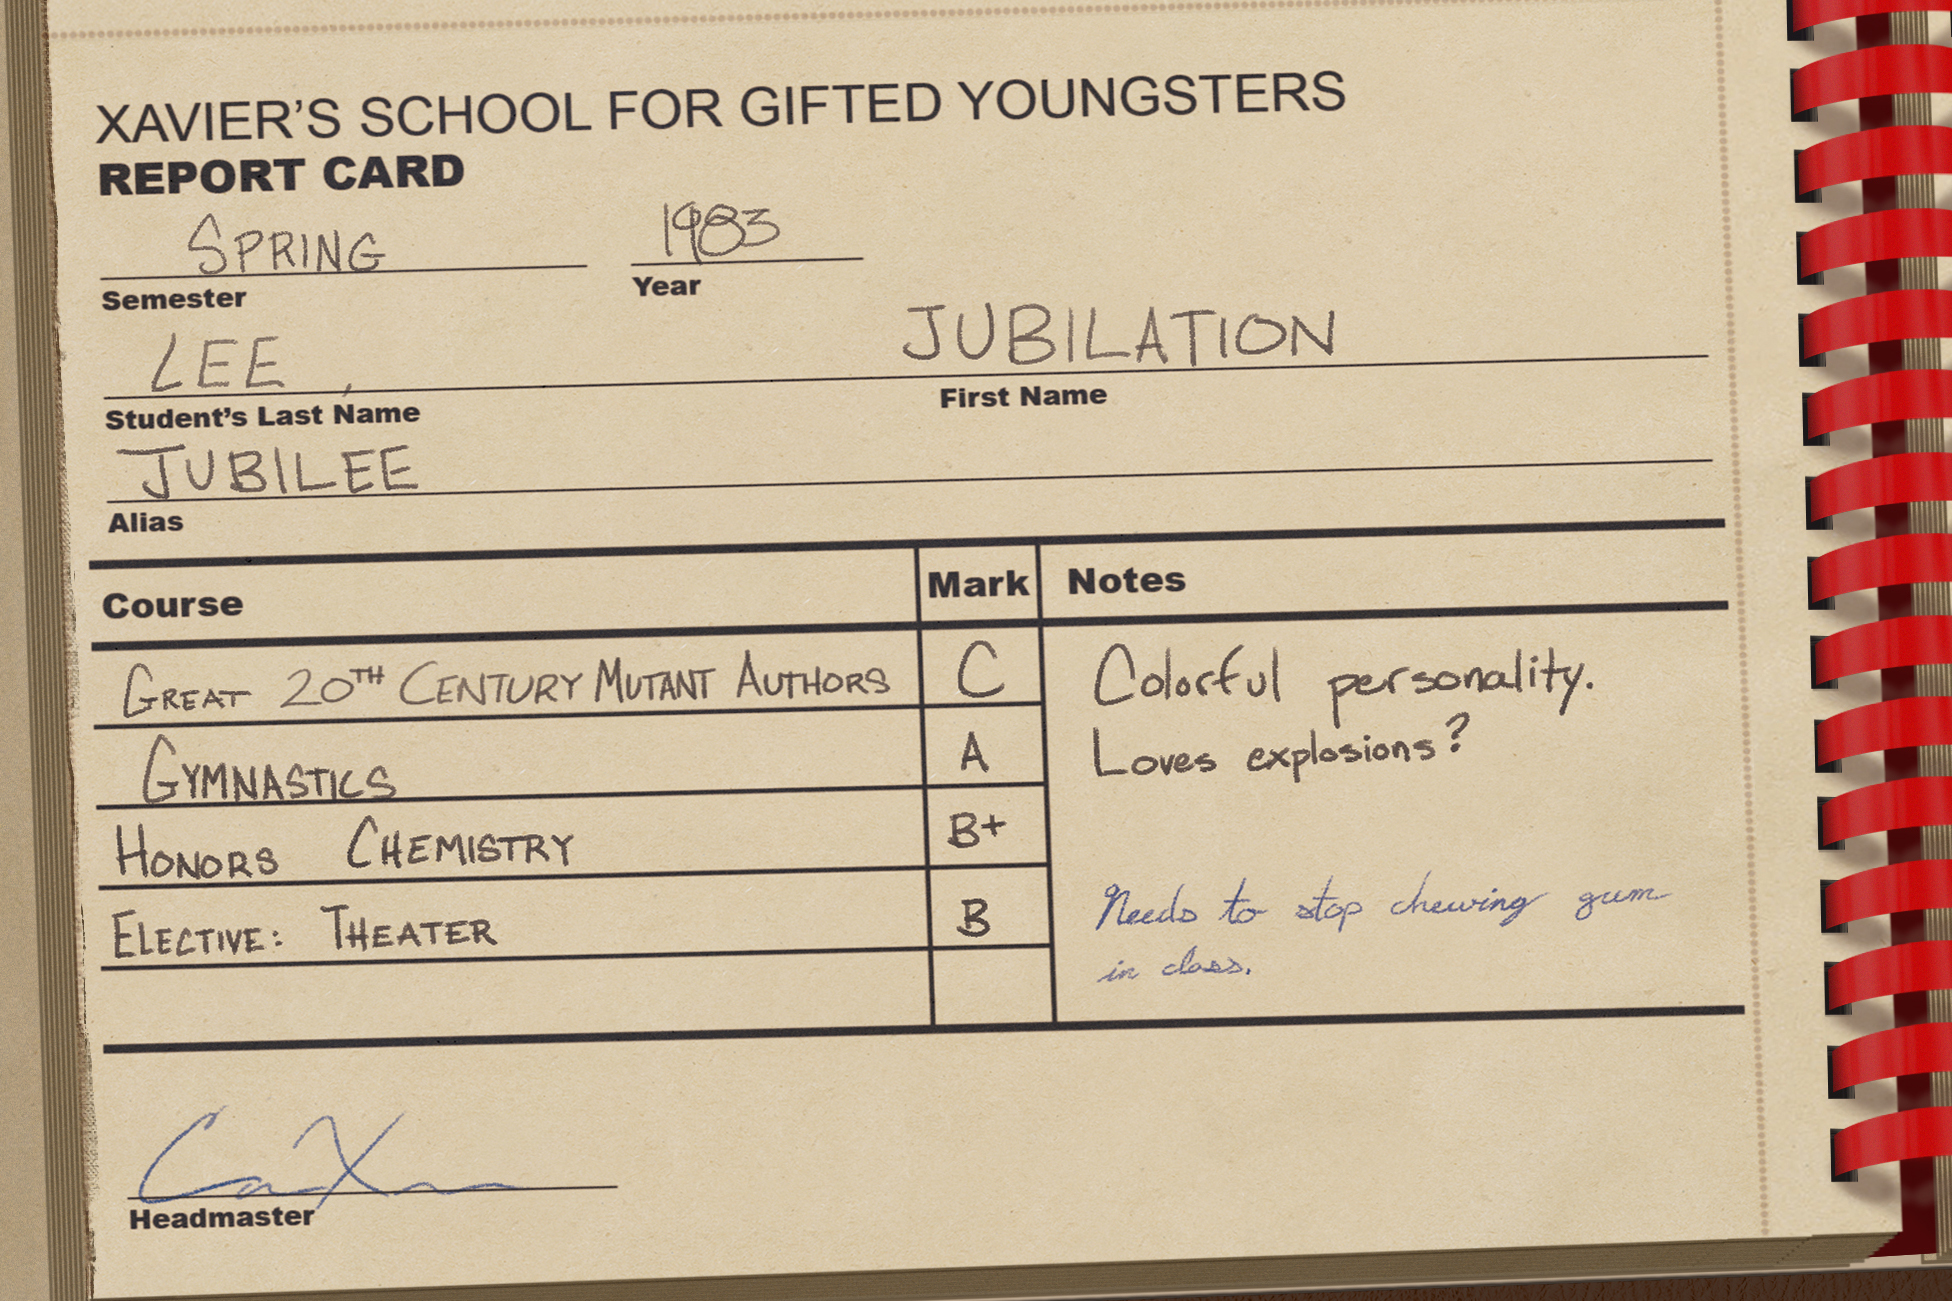 XAVIER'S SCHOOL FOR GIFTED YOUNGSTERS
REPORT CARD
SPRING 1983
Semester Year
LEE, JUBILATION
Student's Last Name First Name
JUBILEE
Alias
Course Mark Notes
GREAT 20TH CENTURY MUTANT AUTHORS C Colorful personality.
GYMNASTICS A Loves explosions?
HONORS CHEMISTRY B+
ELECTIVE: THEATER B Needs to stop chewing gum
in class.
Headmaster